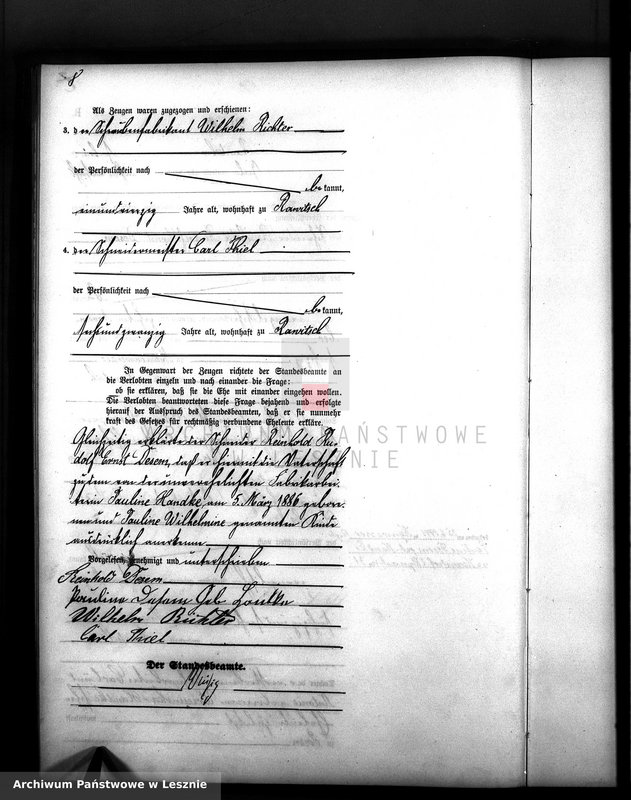 8
Als Zeugen waren zugezogen und erschienen:
3. der Schraubenfabrikant Wilhelm Richter
der Persönlichkeit nach
bekannt,
Jahre alt, wohnhaft zu Rawitsch
4. der Schneidermeister Carl Thiel
der Persönlichkeit nach
bekannt,
sechsundzwanzig Jahre alt, wohnhaft zu Rawitsch
In Gegenwart der Zeugen richtete der Standesbeamte an
die Verlobten einzeln und nach einander die Frage:
ob sie erklären, daß sie die Ehe mit einander eingehen wollen.
Die Verlobten beantworteten diese Frage bejahend und erfolgte
hierauf der Ausspruch des Standesbeamten, daß er sie nunmehr
kraft des Gesetzes für rechtmäßig verbundene Eheleute erkläre.
Gleichzeitig erklärte der Schneider Reinhold Ru-
dolf Ernst Desem, daß er hiermit die Vaterschaft
zu dem von der unverehelichten Fabrikarbei-
terin Pauline Handke am 5. März 1886 gebore-
nen und Pauline Wilhelmine genannten Kinde
ausdrücklich anerkenne.
Vorgelesen, genehmigt und unterschrieben
Reinhold Desem
Geb
Wilhelm Richter
Carl Thiel
Der Standesbeamte.
ARCHIWUM PAŃSTWOWE
W LESZNIE
Archiwum Państwowe w Lesznie